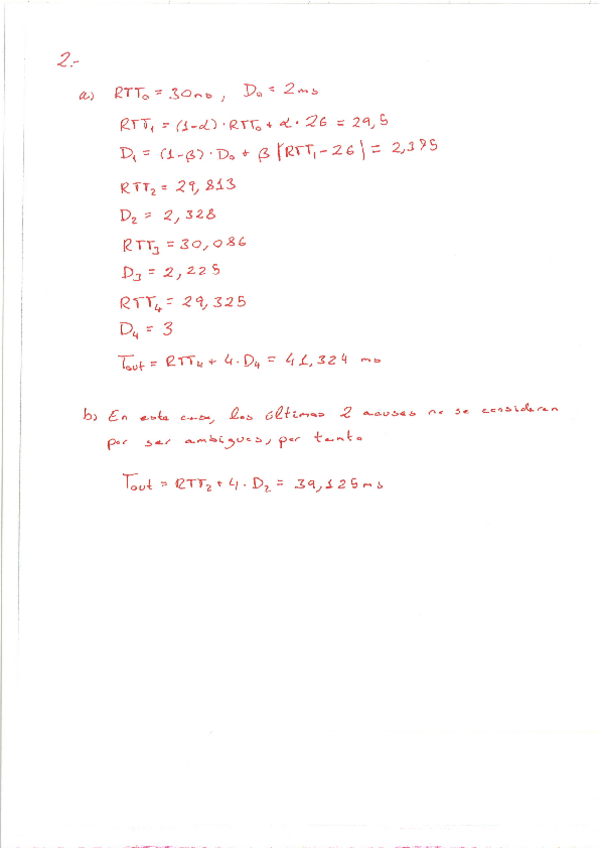 2.-
a) RTT₀ = 30ms, D₀ = 2ms
RTT₁ = (1-α)·RTT₀ + α · 26 = 29,5
D₁ = (1-β)·D₀ + β |RTT₁ - 26| = 2,375
RTT₂ = 29,813
D₂ = 2,328
RTT₃ = 30,086
D₃ = 2,225
RTT₄ = 29,325
D₄ = 3
Tout = RTT₄ + 4·D₄ = 41,324 ms
b) En este caso, los últimos 2 acuses no se consideran
por ser ambiguos, por tanto
Tout = RTT₂ + 4·D₂ = 39,125ms